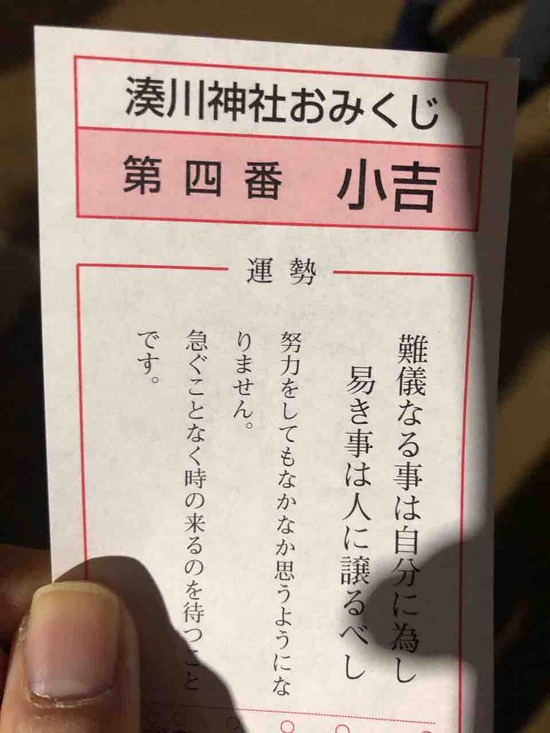 湊川神社おみくじ
第四番 小吉
運勢
難儀なる事は自分に為し
易き事は人に譲るべし
努力をしてもなかなか思うようにな
りません。
急ぐことなく時の来るのを待つこと
です。